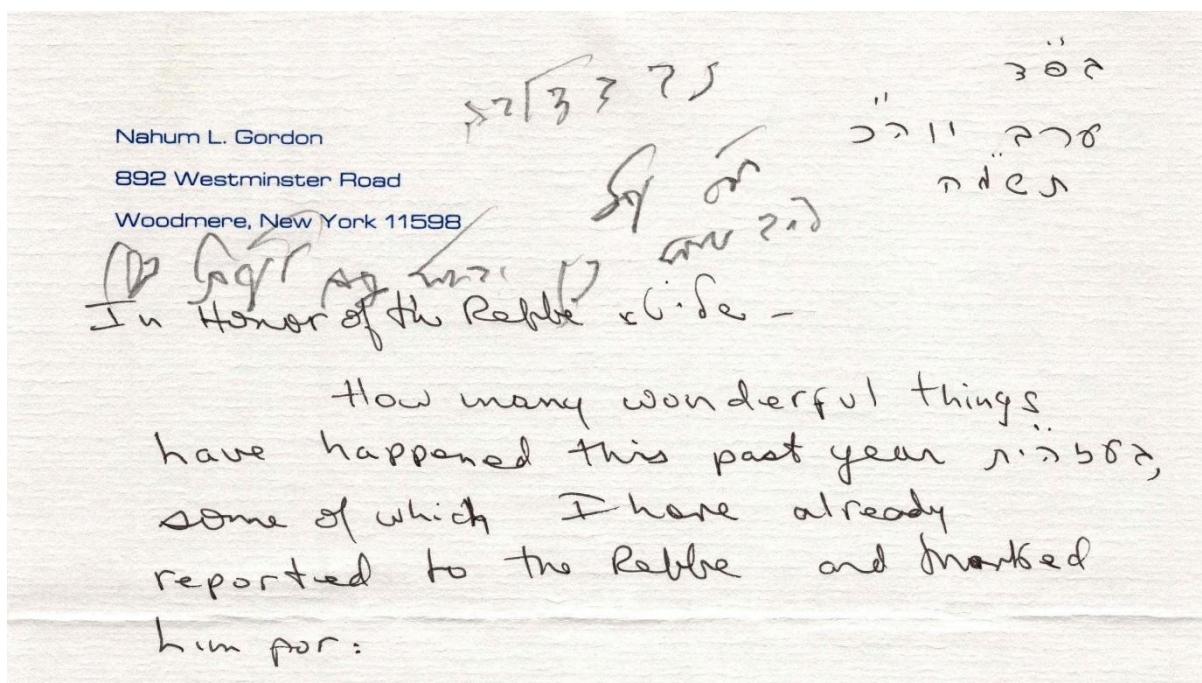 בס"ד
ערב יוה"כ
תשמ"ה
Nahum L. Gordon
892 Westminster Road
Woodmere, New York 11598
In Honor of the Rebbe שליט"א -
How many wonderful things
have happened this past year בעזהי"ת,
some of which I have already
reported to the Rebbe and thanked
him for: